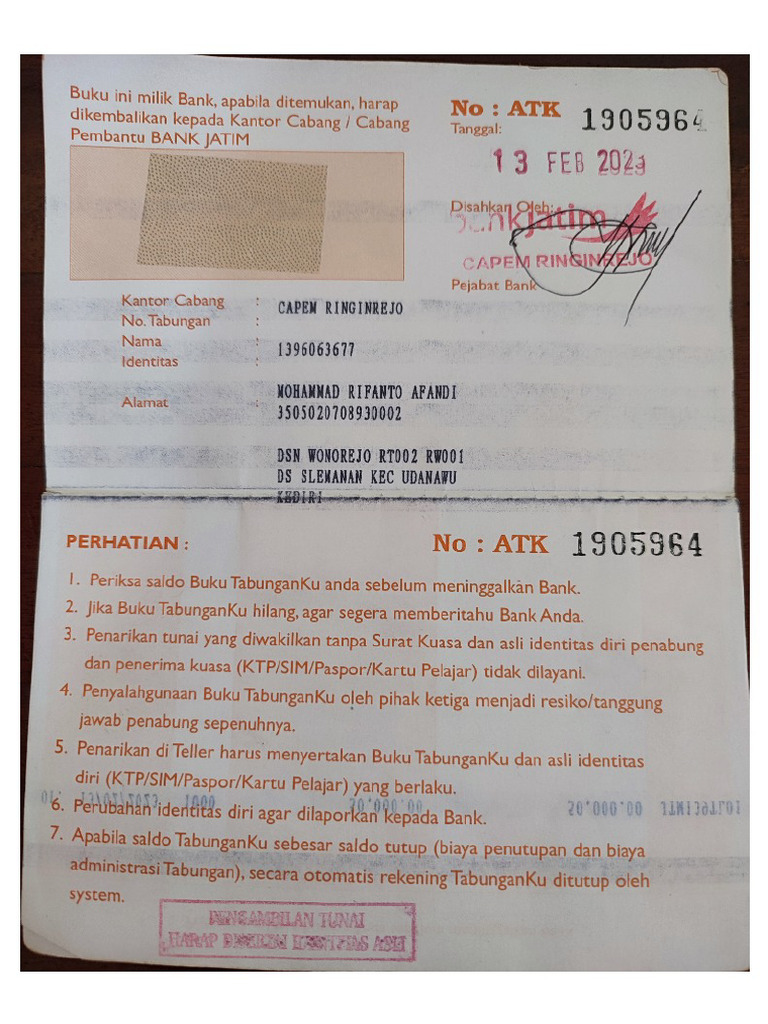 Buku ini milik Bank, apabila ditemukan, harap
dikembalikan kepada Kantor Cabang / Cabang
Pembantu BANK JATIM
No : ATK 1905964
Tanggal:
13 FEB 2023
Disahkan Oleh:
bankjatim
CAPEM RINGINREJO
Pejabat Bank
Kantor Cabang : CAPEM RINGINREJO
No. Tabungan :
Nama : 1396063677
Identitas :
MOHAMMAD RIFANTO AFANDI
Alamat : 3505020708930002
DSN WONOREJO RT002 RW001
DS SLEMANAN KEC UDANAWU
KEDIRI
PERHATIAN :
No : ATK 1905964
1. Periksa saldo Buku TabunganKu anda sebelum meninggalkan Bank.
2. Jika Buku TabunganKu hilang, agar segera memberitahu Bank Anda.
3. Penarikan tunai yang diwakilkan tanpa Surat Kuasa dan asli identitas diri penabung
dan penerima kuasa (KTP/SIM/Paspor/Kartu Pelajar) tidak dilayani.
4. Penyalahgunaan Buku TabunganKu oleh pihak ketiga menjadi resiko/tanggung
jawab penabung sepenuhnya.
5. Penarikan di Teller harus menyertakan Buku TabunganKu dan asli identitas
diri (KTP/SIM/Paspor/Kartu Pelajar) yang berlaku.
6. Perubahan identitas diri agar dilaporkan kepada Bank.
7. Apabila saldo TabunganKu sebesar saldo tutup (biaya penutupan dan biaya
administrasi Tabungan), secara otomatis rekening TabunganKu ditutup oleh
system.
PENGAMBILAN TUNAI
HARAP DISERTAI IDENTITAS ASLI